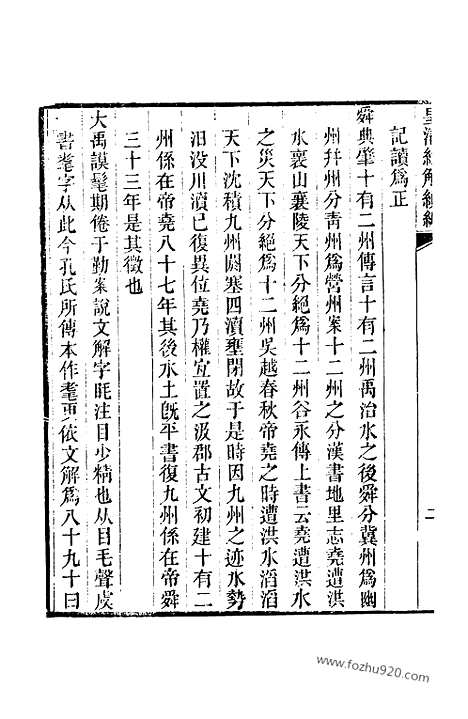 皇清經解續編
二
記讀爲正
舜典肇十有二州傳言十有二州禹治水之後舜分冀州爲幽
州幷州分靑州爲營州案十二州之分漢書地里志堯遭洪
水襄山襄陵天下分絕爲十二州谷永傳上書云堯遭洪水
之災天下分絕爲十二州吳越春秋帝堯之時遭洪水滔滔
天下沈積九州閼塞四瀆壅閉故于是時因九州之迹水勢
汩没川瀆已復異位堯乃權宜置之汲郡古文初建十有二
州係在帝堯八十七年其後水土旣平書復九州係在帝舜
三十三年是其徵也
大禹謨耄期倦于勤案說文解字眊注目少精也从目毛聲虞
書耄字从此今孔氏所傳本作耄更依文解爲八十九十曰
www.fozhu920.com